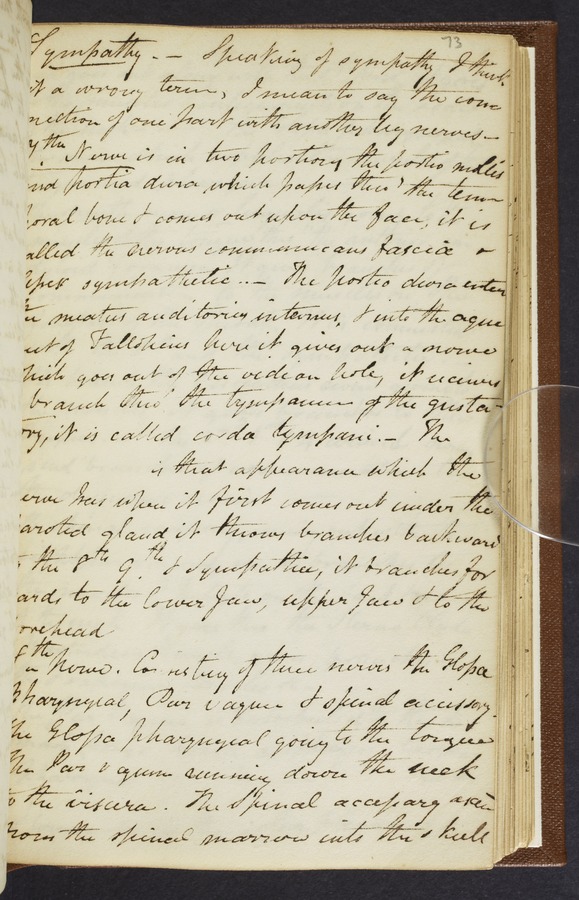 73
Sympathy. — Speaking of sympathy I think
it a wrong term, I mean to say the conn
nection of one part with another by nerves —
7th Nerve is in two portions, the portio mollis
and portia dura, which passes thro' the tem
poral bone & comes out upon the face, it is
alled the nervus communicans fascia or
sympathetic .. — The portio dura enter
meatus auditorius internus, & into the aque
uct of Fallopius here it gives out a nerve
hich goes out of the vidian hole, it recieves
branch thro' the tympanum of the gusta-
ry, it is called corda tympani. — The
is that appearance which the
erve has when it first comes out under the
aroted gland it throws branches backward
the 8th 9th & Sympathic, it branches for
ards to the lower Jaw, upper Jaw & to the
orehead
8th Nerve. Consisting of three nerves the Glossa
Pharyngeal, Par vagum & spinal accessory.
he Glossa pharyngeal going to the tongue
The Par vagum running down the neck
to the viscera. The Spinal accessary
from the spinal marrow into the skull